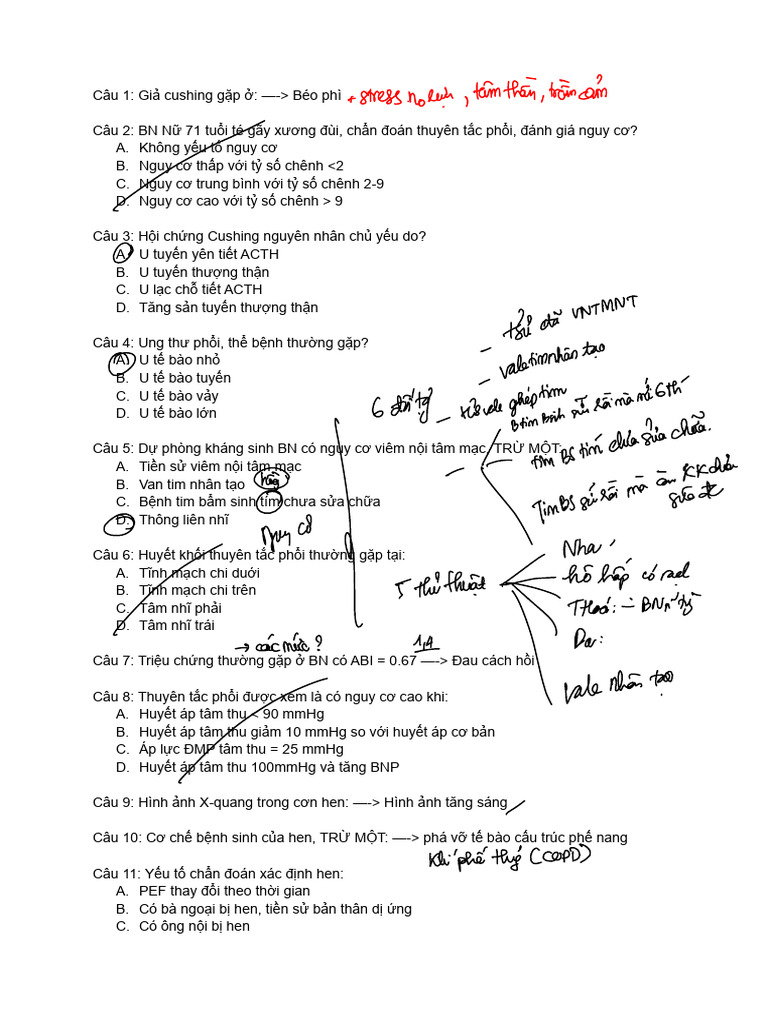 Câu 1: Giả cushing gặp ở: —-> Béo phì + stress , tâm thần, trầm cảm
Câu 2: BN Nữ 71 tuổi té gãy xương đùi, chẩn đoán thuyên tắc phổi, đánh giá nguy cơ?
A. Không yếu tố nguy cơ
B. Nguy cơ thấp với tỷ số chênh <2
C. Nguy cơ trung bình với tỷ số chênh 2-9
D. Nguy cơ cao với tỷ số chênh > 9
Câu 3: Hội chứng Cushing nguyên nhân chủ yếu do?
A. U tuyến yên tiết ACTH
B. U tuyến thượng thận
C. U lạc chỗ tiết ACTH
D. Tăng sản tuyến thượng thận
- tsử đã VNTMNT
Câu 4: Ung thư phổi, thể bệnh thường gặp?
- vale tim nhân tạo
A. U tế bào nhỏ
B. U tế bào tuyến
C. U tế bào vảy
6 đối tg - vale ghép tim
D. U tế bào lớn
Câu 5: Dự phòng kháng sinh BN có nguy cơ viêm nội tâm mạc, TRỪ MỘT:
Tim BS tím chưa sửa chữa.
A. Tiền sử viêm nội tâm mạc
B. Van tim nhân tạo
C. Bệnh tim bẩm sinh tím chưa sửa chữa
Tim BS sửa rồi mà còn
D. Thông liên nhĩ
nguy cơ
Nha
Câu 6: Huyết khối thuyên tắc phổi thường gặp tại:
A. Tĩnh mạch chi duới
hô hấp có
B. Tĩnh mạch chi trên
5 thủ thuật
C. Tâm nhĩ phải
D. Tâm nhĩ trái
Da:
→ các mức? 1,4
Câu 7: Triệu chứng thường gặp ở BN có ABI = 0.67 —-> Đau cách hồi
vale nhân tạo
Câu 8: Thuyên tắc phổi được xem là có nguy cơ cao khi:
A. Huyết áp tâm thu < 90 mmHg
B. Huyết áp tâm thu giảm 10 mmHg so với huyết áp cơ bản
C. Áp lực ĐMP tâm thu = 25 mmHg
D. Huyết áp tâm thu 100mmHg và tăng BNP
Câu 9: Hình ảnh X-quang trong cơn hen: —-> Hình ảnh tăng sáng
Câu 10: Cơ chế bệnh sinh của hen, TRỪ MỘT: —-> phá vỡ tế bào cấu trúc phế nang
Khí phế thũng (COPD)
Câu 11: Yếu tố chẩn đoán xác định hen:
A. PEF thay đổi theo thời gian
B. Có bà ngoại bị hen, tiền sử bản thân dị ứng
C. Có ông nội bị hen